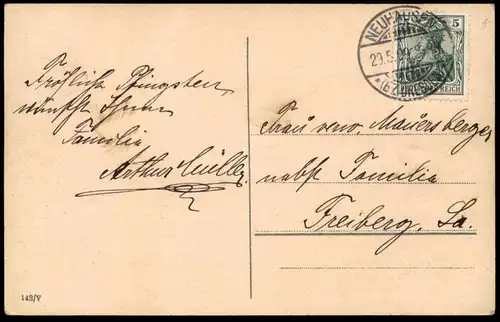 Fröhliche Pfingsten
wünscht Ihnen
Familie
Arthur Müller.
NEUHAUSEN
29.5.
(BZ. DRESDEN)
5
REICH
Frau verw. Mauersberger
nebst Familie
Freiberg, Sa.
143/V